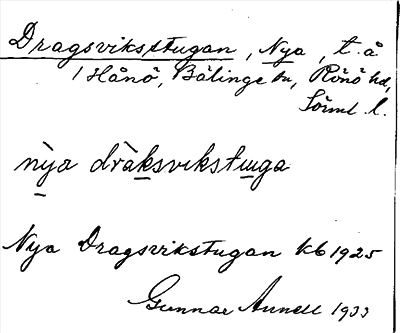 Dragsviksstugan, Nya, t. å
/ Hånö, Bälinge sn, Rönö hd,
Sörml. l.
nỳa dràksvikstɯga
Nya Dragsvikstugan kb 1925
Gunnar Annell 1933